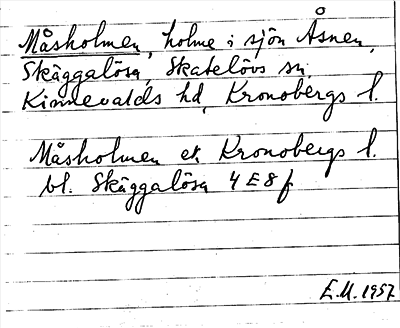 Måsholmen, holme i sjön Åsnen,
Skäggalösa, Skatelövs sn,
Kinnevalds hd, Kronobergs l.
Måsholmen ek Kronobergs l.
bl. Skäggalösa 4 E 8 f
E.M. 1957